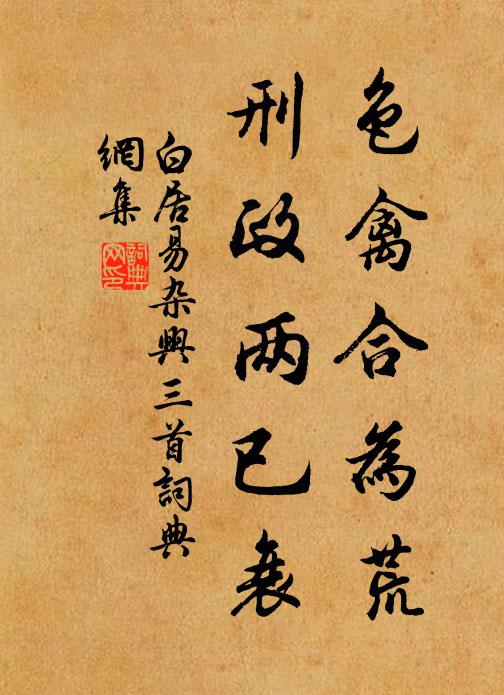 色禽合為荒
刑政两已衰
白居易杂興三首詞典
網集
詞典
网印